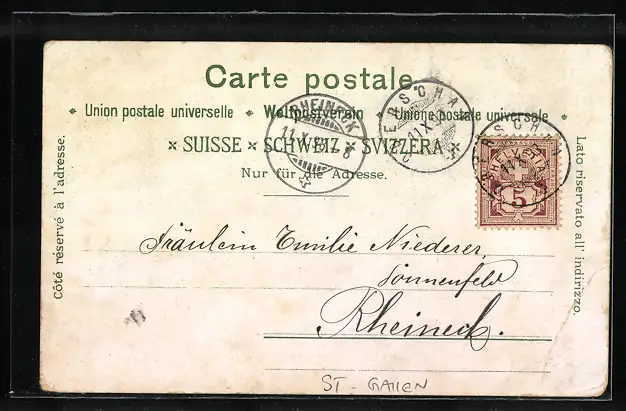 Carte postale.
Union postale universelle Weltpostverein Unione postale universale
× SUISSE × SCHWEIZ × SVIZZERA ×
Nur für die Adresse.
Côté réservé à l'adresse.
Lato riservato all' indirizzo.
RHEINECK
HELVETIA
5
Fräulein Emilie Niederer,
Sonnenfeld
Rheineck.
ST-GALLEN